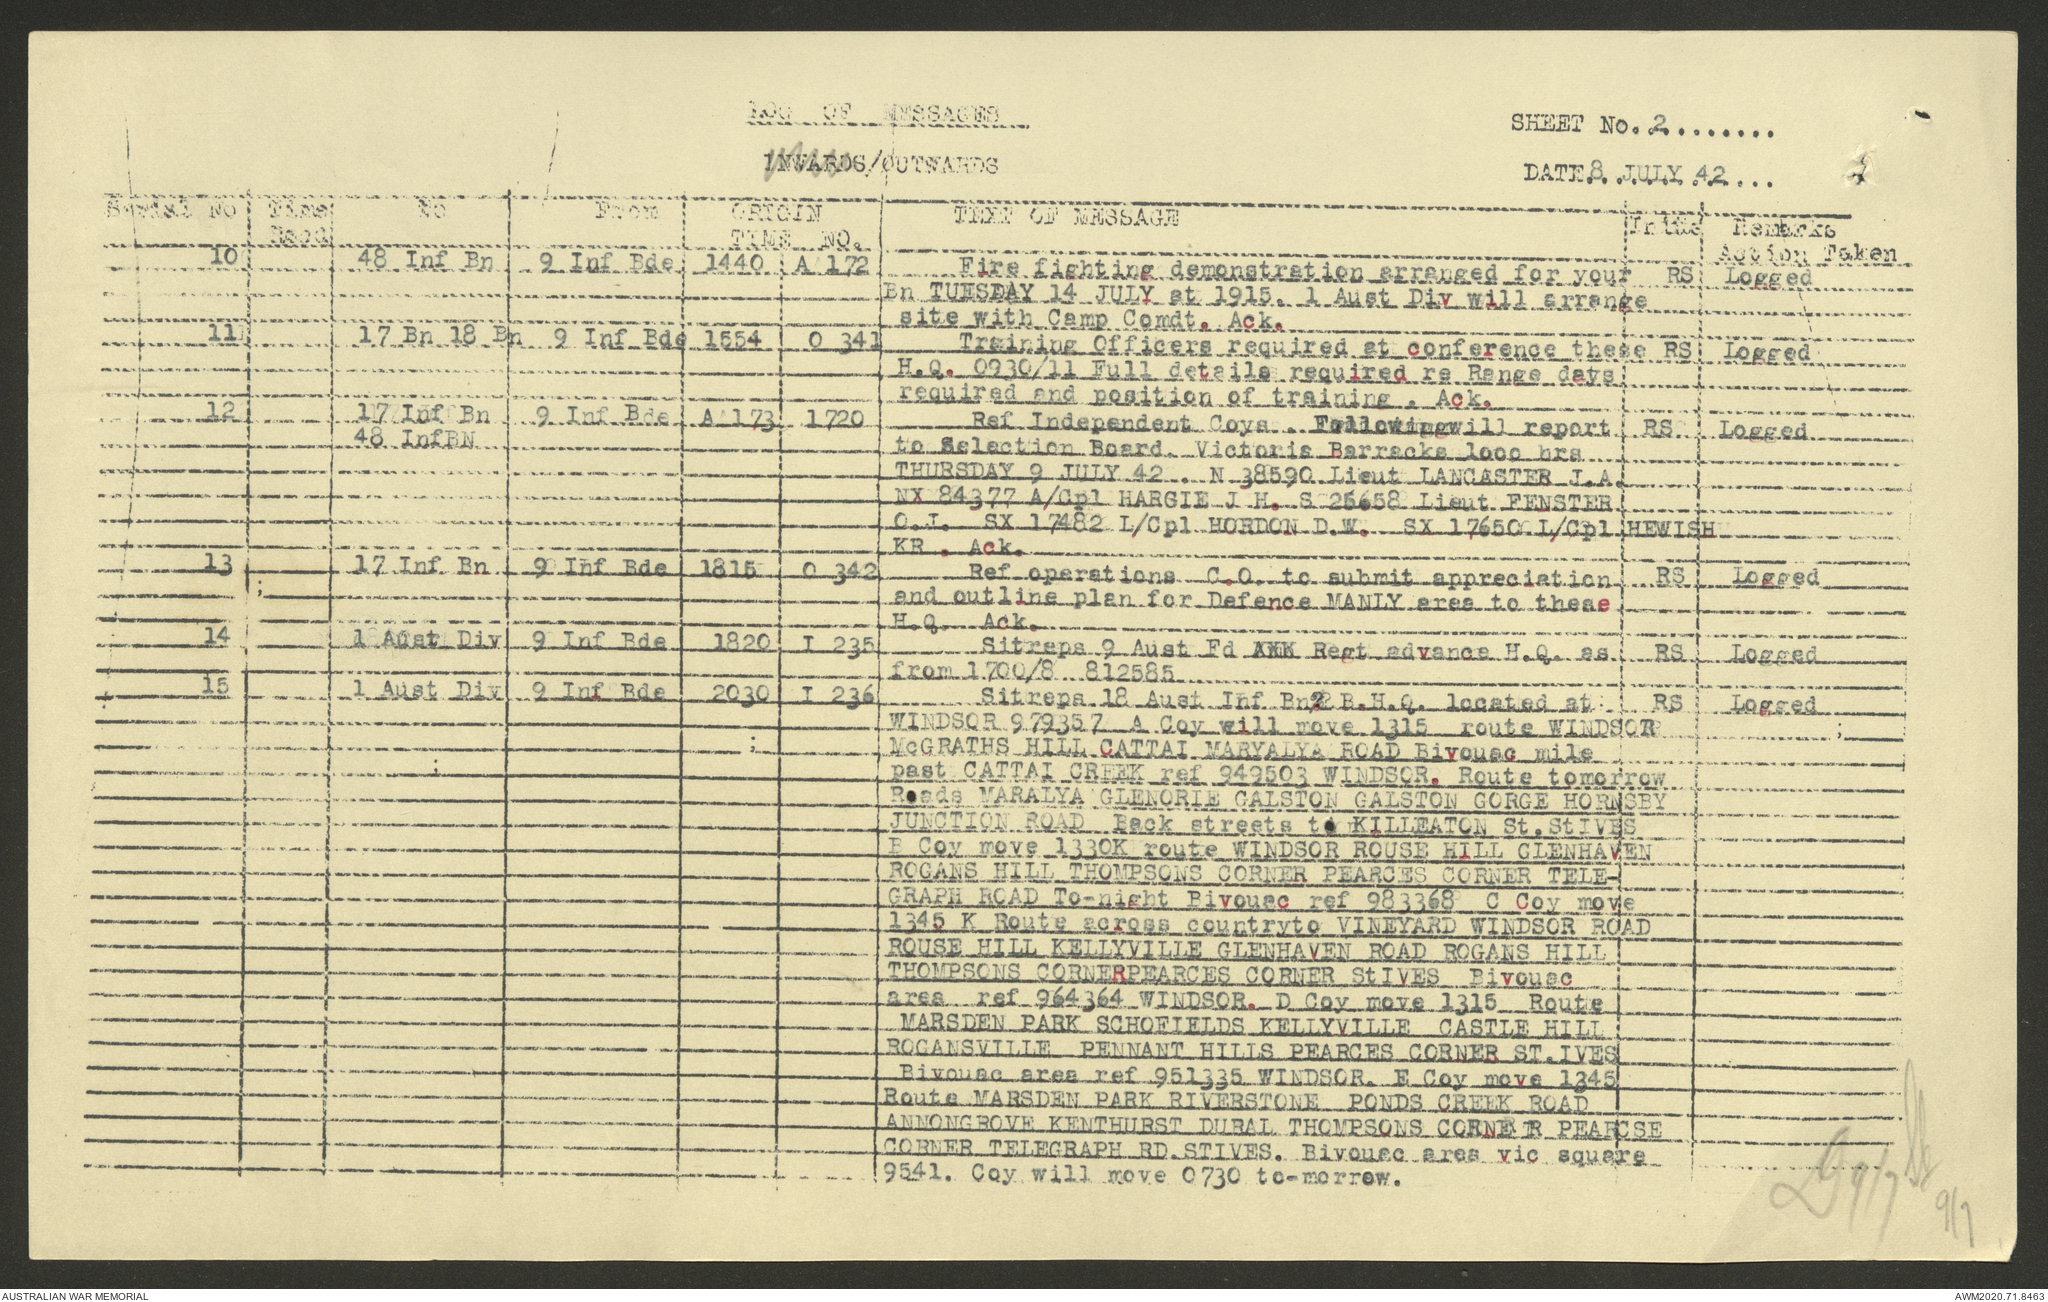 LOG OF MESSAGES
SHEET No. 2........
INWARDS/OUTWARDS
DATE 8 JULY 42...
Serial No Time To From ORIGIN TEXT OF MESSAGE Intls Remarks
Recd TIME NO. Action Taken
10 48 Inf Bn 9 Inf Bde 1440 A 172 Fire fighting demonstration arranged for your RS Logged
Bn TUESDAY 14 JULY at 1915. 1 Aust Div will arrange
site with Camp Comdt. Ack.
11 17 Bn 18 Bn 9 Inf Bde 1554 O 341 Training Officers required at conference these RS Logged
H.Q. 0930/11 Full details required re Range days
required and position of training . Ack.
12 17 Inf Bn 9 Inf Bde A 173 1720 Ref Independent Coys . Followingwill report RS Logged
48 InfBN to Selection Board. Victoria Barracks 1000 hrs
THURSDAY 9 JULY 42 . N 38590 Lieut LANCASTER J.A.
NX 84377 A/Cpl HARGIE J H. S 25658 Lieut FENSTER
O.I. SX 17482 L/Cpl HORDON D.W. SX 17650 L/Cpl HEWISH
KR . Ack.
13 17 Inf Bn 9 Inf Bde 1815 O 342 Ref operations C.O. to submit appreciation RS Logged
and outline plan for Defence MANLY area to these
H.Q. Ack.
14 1 Aust Div 9 Inf Bde 1820 I 235 Sitreps 9 Aust Fd Regt advance H.Q. as RS Logged
from 1700/8 812585
15 1 Aust Div 9 Inf Bde 2030 I 236 Sitreps 18 Aust Inf Bn B.H.Q. located at RS Logged
WINDSOR 979357 A Coy will move 1315 route WINDSOR
McGRATHS HILL CATTAI MARYALYA ROAD Bivouac mile
past CATTAI CREEK ref 949503 WINDSOR. Route tomorrow
Roads MARALYA GLENORIE GALSTON GALSTON GORGE HORNSBY
JUNCTION ROAD Back streets to KILLEATON St.StIVES
B Coy move 1330K route WINDSOR ROUSE HILL GLENHAVEN
ROGANS HILL THOMPSONS CORNER PEARCES CORNER TELE-
GRAPH ROAD To-night Bivouac ref 983368 C Coy move
1345 K Route across countryto VINEYARD WINDSOR ROAD
ROUSE HILL KELLYVILLE GLENHAVEN ROAD ROGANS HILL
THOMPSONS CORNERPEARCES CORNER StIVES Bivouac
area ref 964364 WINDSOR. D Coy move 1315 Route
MARSDEN PARK SCHOFIELDS KELLYVILLE CASTLE HILL
ROGANSVILLE PENNANT HILLS PEARCES CORNER ST.IVES
Bivouac area ref 951335 WINDSOR. E Coy move 1345
Route MARSDEN PARK RIVERSTONE PONDS CREEK ROAD
ANNONGROVE KENTHURST DURAL THOMPSONS CORNER PEARCSE
CORNER TELEGRAPH RD.STIVES. Bivouac area vic square
9541. Coy will move 0730 to-morrow.
9/7
9/7
AUSTRALIAN WAR MEMORIAL
AWM2020.71.8463